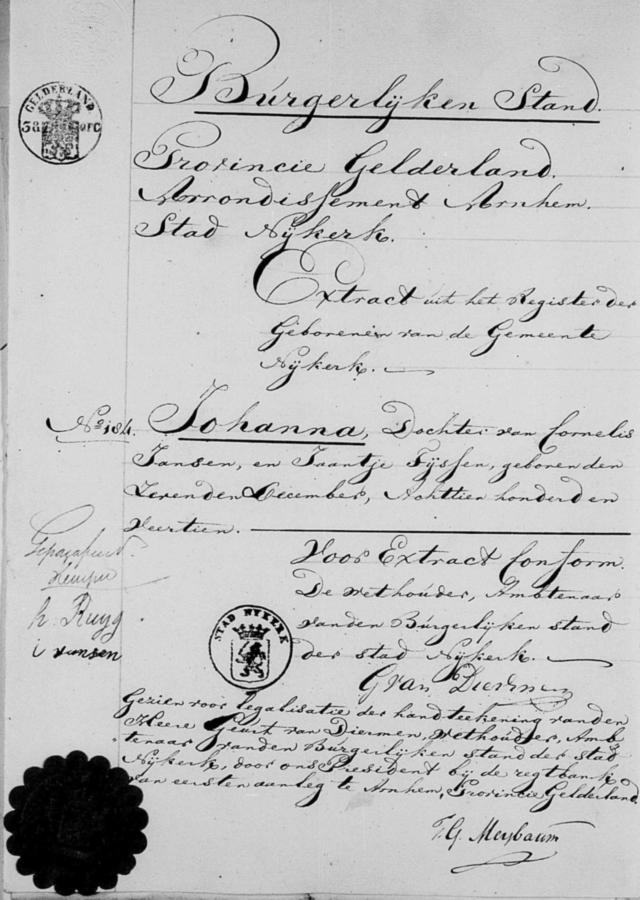 GELDERLAND
38
Burgerlijken Stand.
Provincie Gelderland.
Arrondissement Arnhem.
Stad Nijkerk.
Extract uit het Register der
Geborenen van de Gemeente
Nijkerk.
No 184. Johanna, Dochter van Cornelis
Jansen, en Jaantje Tijssen, geboren den
Zevenden December, Achttien honderd en
veertien.
Voor Extract Conform.
De wethouder, Ambtenaar
van den Burgerlijken stand
der stad Nijkerk.
G van Diermen
Geparafeert
h. Ruijg
i Jansen
STAD NYKERK
Gezien voor legalisatie der handteekening van den
Heere Geurt van Diermen, wethouder, Amb-
tenaar van den Burgerlijken stand der stad
Nijkerk, door ons President bij de regtbank
van eersten aanleg te Arnhem, Provincie Gelderland.
Meybaum